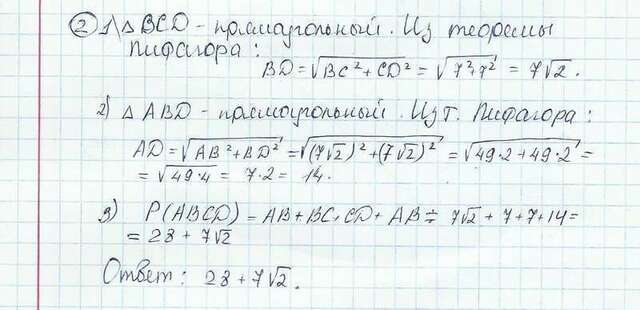 ② 1) △ BCD - прямоугольный. Из теоремы
Пифагора :
BD = √(BC² + CD²) = √(7² + 7²) = 7√2.
2) △ ABD - прямоугольный. Из т. Пифагора :
AD = √(AB² + BD²) = √((7√2)² + (7√2)²) = √(49·2 + 49·2) =
= √(49·4) = 7·2 = 14.
3) P(ABCD) = AB + BC + CD + AB = 7√2 + 7 + 7 + 14 =
= 28 + 7√2
Ответ : 28 + 7√2.